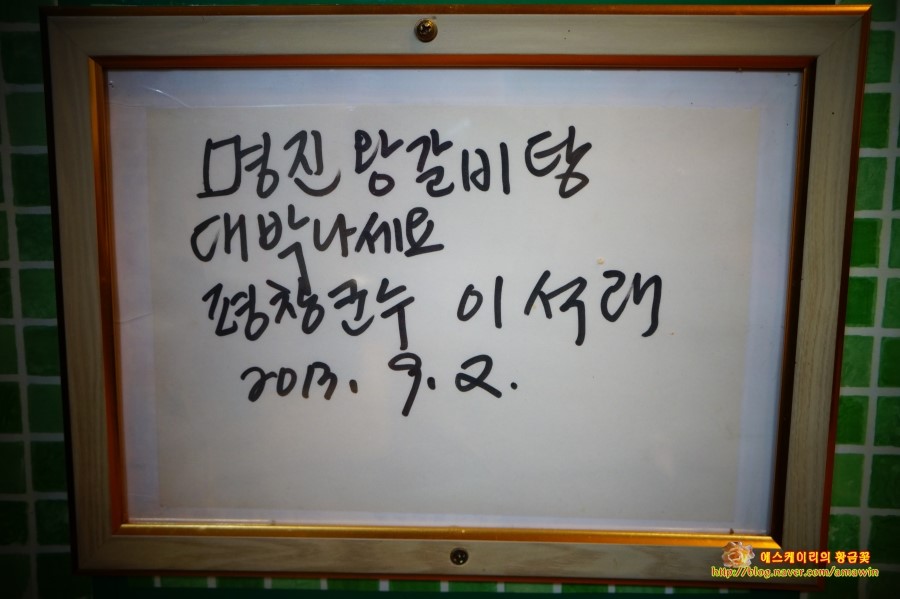 명진왕갈비탕
대박나세요
평창군수 이석래
2013. 9. 2.
에스케이리의 황금꽃
http://blog.naver.com/amawin